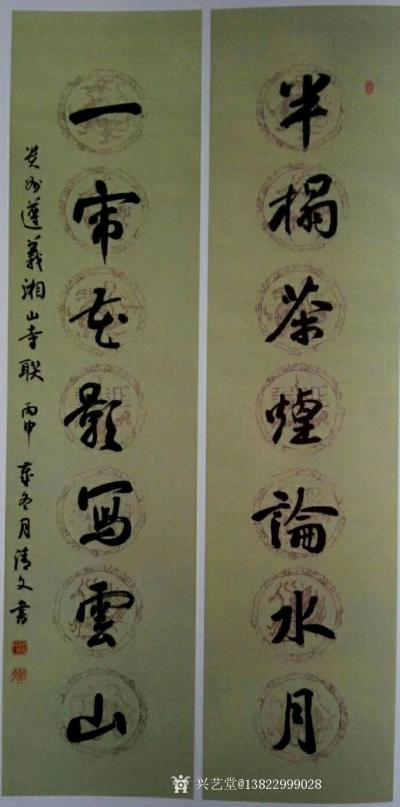 半榻茶煙論水月
一帘花影寫雲山
贵州遵義湘山寺联 丙申年冬月清文書
兴艺堂@13822999028